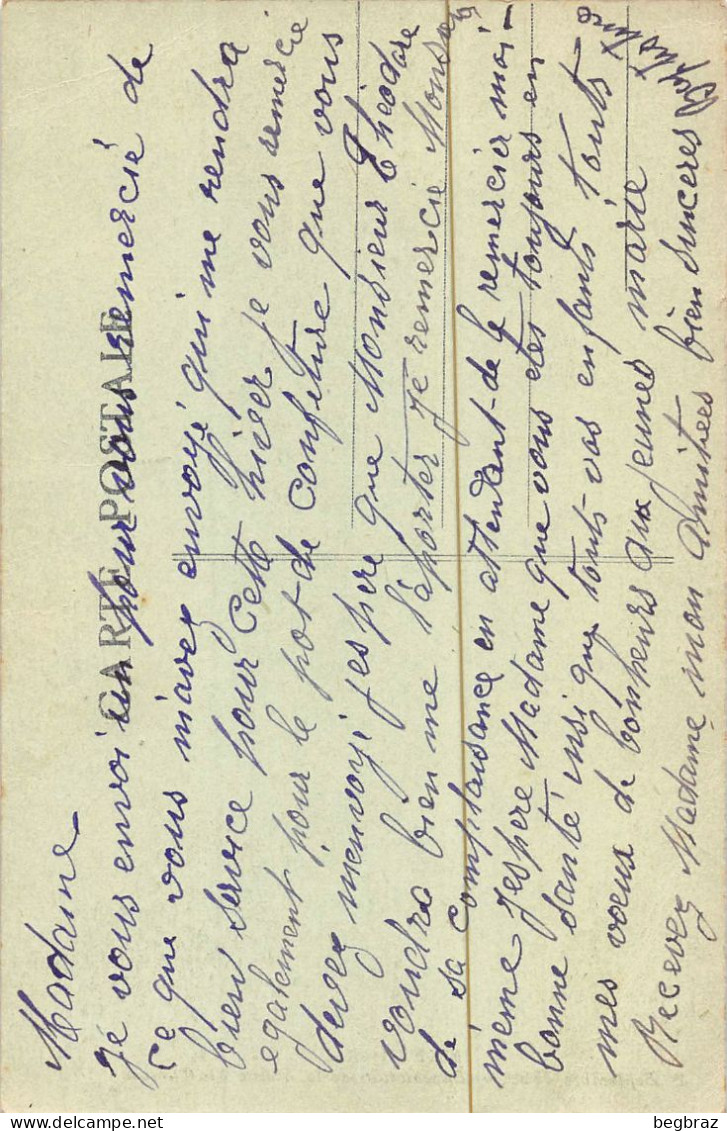 CARTE POSTALE
Madame
Je vous envoi un pour vous remercié de
ce que vous mavez envoyé qui me rendra
bien service pour cette hiver je vous remercie
egalement pour le pot de confiture que vous
devez menvoyé j'espère que Monsieur Théodore
voudra bien me l'aporter Je remercie Monsieur
de sa complaisance en attendant de le remercier moi-
même J'espère Madame que vous etes toujours en
bonne santé insi que touts vos enfants touts
mes voeux de bonheurs aux jeunes marié
Recevez Madame mon Amitiées bien sinceres
begbraz